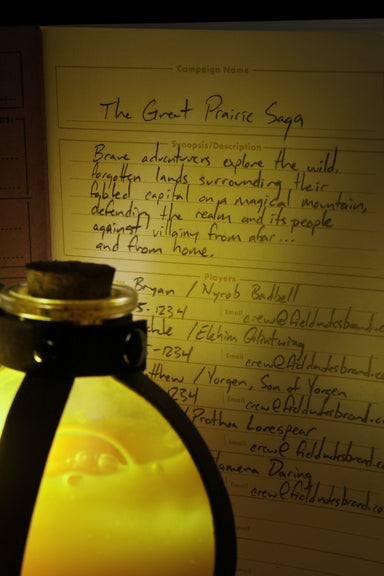 Campaign Name
The Great Prairie Saga
Synopsis/Description
Brave adventurers explore the wild,
forgotten lands surrounding their
fabled capital on a magical mountain,
defending the realm and its people
against villainy from afar...
and from home.
Players
Bryan / Nyrob Badbell
5-1234 Email crew@fieldnotesbrand.c
/Elehim Glintwing
-1234 Email crew@fieldnotesbrand.c
thew /Yorgen, Son of Yorgen
1234 Email crew@fieldnotesbrand.co
/Prothea Lonespear
Email crew@fieldnotesbrand.co
amena Daring
Email crew@fieldnotesbrand.co
Email